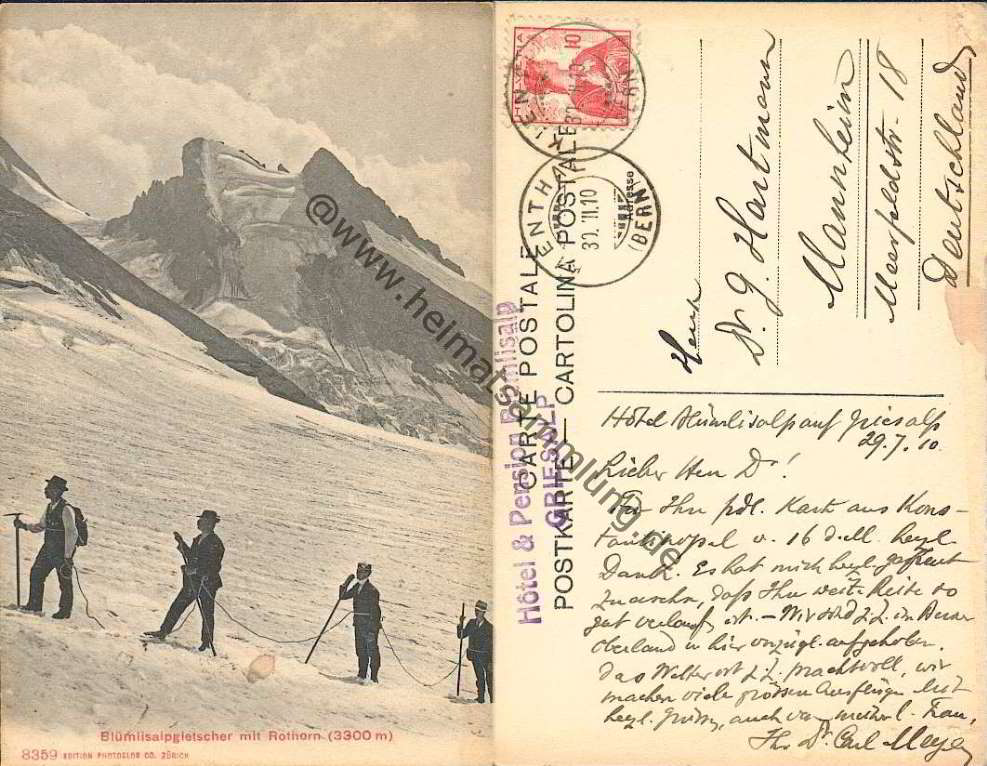 Blümlisalpgletscher mit Rothorn (3300 m)
8359 EDITION PHOTOGLOB CO. ZÜRICH
@www.heimatsammlung.de
HELVETIA 10
KIEN
(BERN)
30.VII.10
KIENTHAL
30.VII.10
(BERN)
Adresse
CARTE POSTALE
POSTKARTE — CARTOLINA POSTALE
Hôtel & Pension Blümlisalp
GRIESALP
Herrn
Dr. G. Hartmann
Mannheim
Meerfeldstr. 18
Deutschland
Hôtel Blümlisalp auf Griesalp
29.7.10.
Lieber Herr Dr!
Für Ihre frdl. Karte aus Kons-
tantinopel v. 16 d. M. herzl.
Dank. Es hat mich herzl. gefreut
zu ersehn, daß Ihre weite Reise so
gut verlaufen ist. – Wir sind z. Z. im Berner
Oberland u. hier vorzügl. aufgehoben.
Das Wetter ist z. Z. prachtvoll, wir
machen viele grössere Ausflüge. Mit
herzl. Grüssen, auch von meiner l. Frau,
Ihr Dr. Carl Meyer